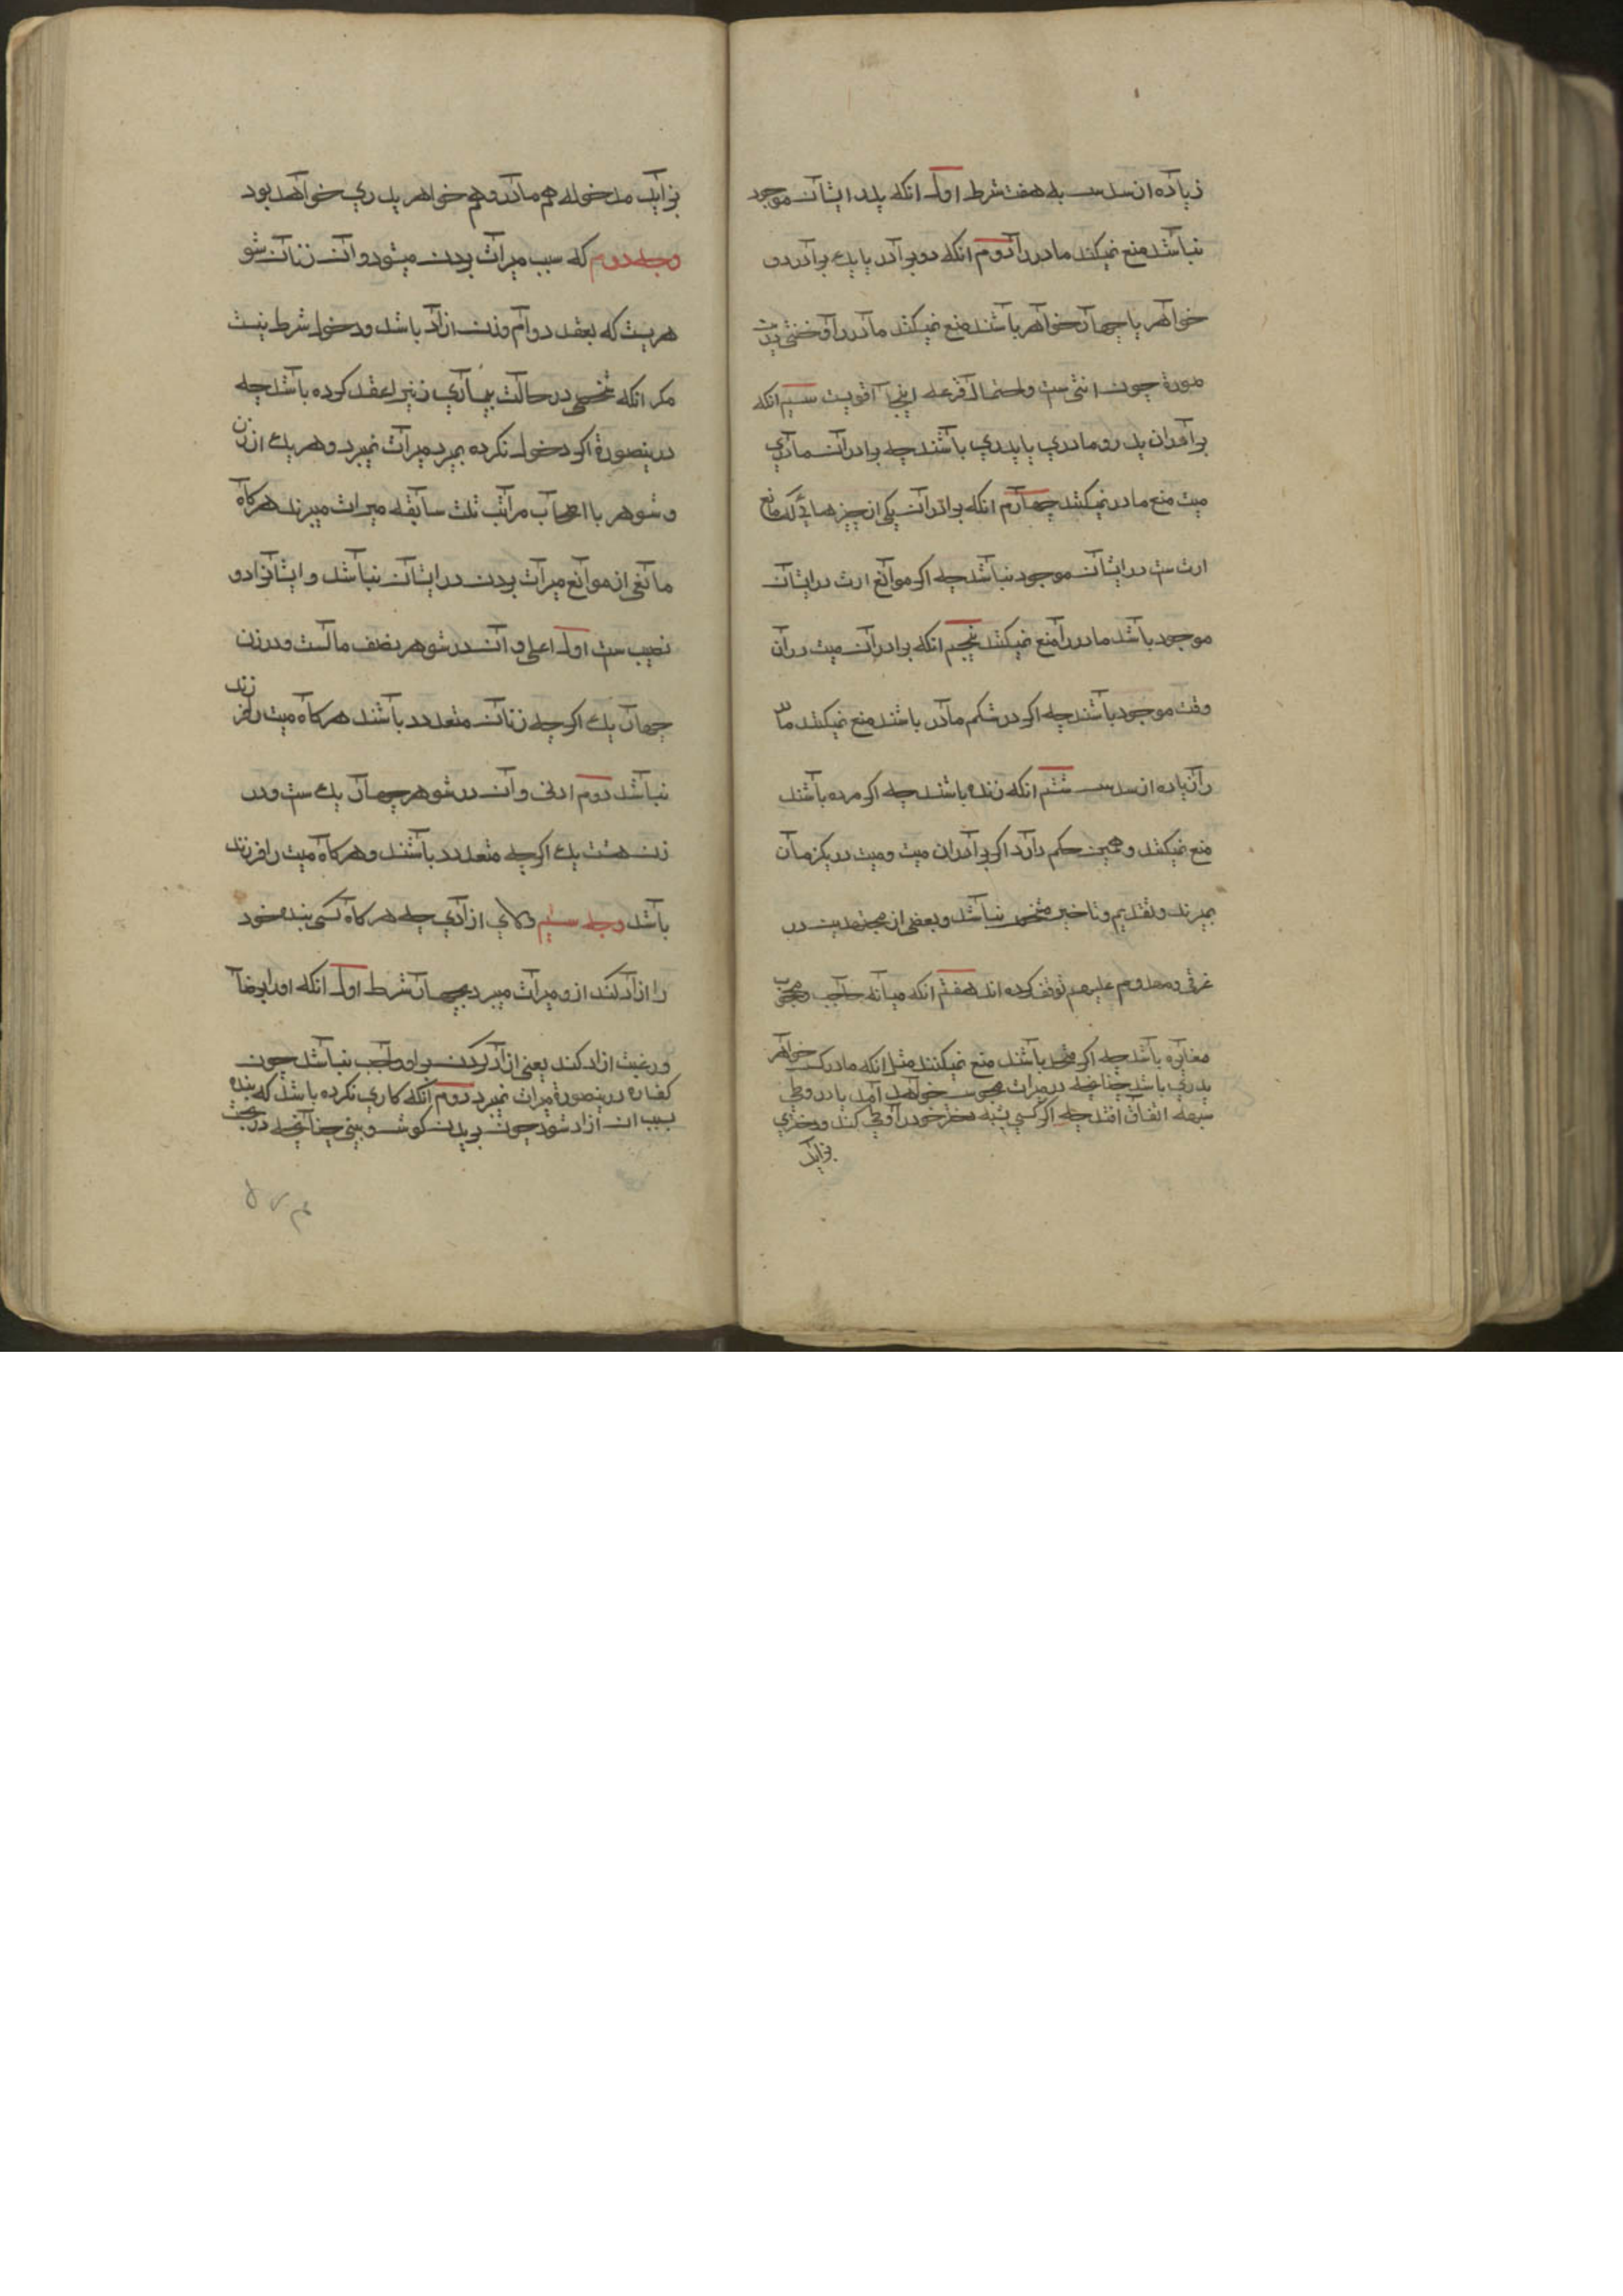 زیاده از سدس به هفت شرط اول انکه پدر ایشان موجود
نباشد منع نمیکنند مادر را دوم انکه دو برادر یا یک برادر و دو
خواهر یا چهار خواهر باشند منع نمیکنند مادر را و خنثی درین
صورة چون انثی ست و احتمال قرعه اینجا قویست سیم انکه
برادران پدر و مادری یا پدری باشند چه برادران مادری
میت منع مادر نمیکنند چهارم انکه برادران یکی از چیزهائی که مانع
ارث ست در ایشان موجود نباشد چه اکر موانع ارث در ایشان
موجود باشد مادر را منع نمیکنند پنجم انکه برادران میت در آن
وقت موجود باشند چه اکر در شکم مادر باشند منع نمیکنند مادر
را زیاده از سدس ششم انکه زنده باشند چه اکر مرده باشند
منع نمیکنند و همین حکم دارد اکر برادران میت و میت در یکزمان
بمیرند و تقدیم و تاخیر مشخص نباشد و بعضی از مجتهدین در
غرقی و مهدوم علیهم توقف کرده اند هفتم انکه میانه حاجب و محجوب
مغایره باشد چه اکر متحد باشند منع نمیکنند مثل انکه مادر کسی خواهر
پدری باشد چنانچه در میراث مجوس خواهد آمد یا در وطی
شبهه اتفاق افتد چه اکر کسی بشبه دختر خود را وطی کند و دختری
بزاید
بزاید مدخوله هم مادر و هم خواهر پدری خواهد بود
وجه دوم که سبب میراث بردن میشود و آن زنان شو
هریست که بعقد دوام وزن ازاد باشد و دخول شرط نیست
مکر انکه شخصی در حالت بیماری زنیرا عقد کرده باشد چه
درینصورة اکر دخول نکرده بمیرد میراث نمیبرد و هر یک از زن
و شوهر با اصحاب مراتب ثلث سابقه میراث میبرند هرکاه
مانعی از موانع میراث بردن در ایشان نباشد و ایشانرا دو
نصیب ست اول اعلی و آن در شوهر نصف مالست و در زن
چهار یک اکر چه زنان متعدد باشند هرکاه میت را فرزند
نباشد دوم ادنی و آن در شوهر چهار یک ست و در
زن هشت یک اکر چه متعدد باشند و هرکاه میت را فرزند
باشد وجه سیم ولای ازادی چه هرکاه کسی بنده خود
را ازاد کند ازو میراث میبرد بچهار شرط اول انکه او را برضا
و رغبت ازاد کند یعنی ازاد کردن بر او واجب نباشد چون
کفاره درینصورة میراث نمیبرد دوم آنکه کاری نکرده باشد که بنده
بسبب ان ازاد شود چون بریدن کوش و بینی چنانچه در بحث